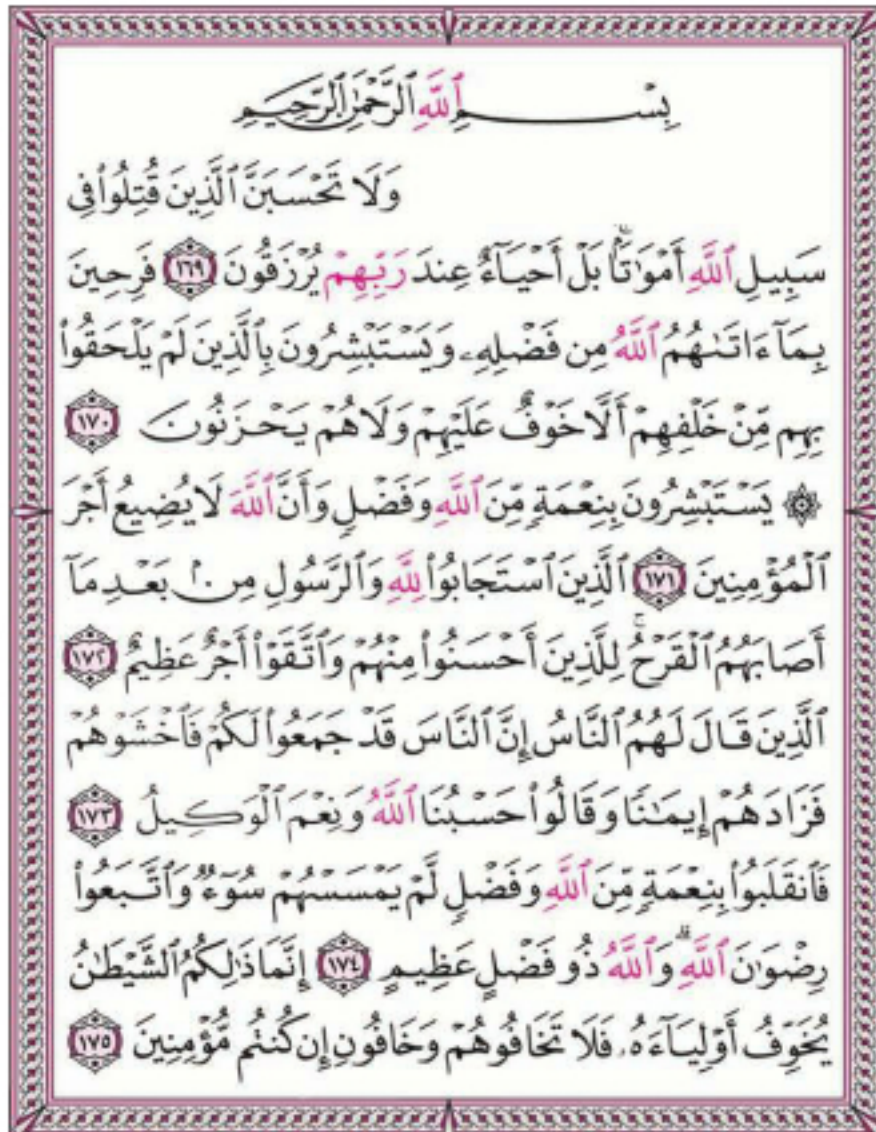 بِسْمِ ٱللَّهِ ٱلرَّحْمَٰنِ ٱلرَّحِيمِ
وَلَا تَحْسَبَنَّ ٱلَّذِينَ قُتِلُوا۟ فِى
سَبِيلِ ٱللَّهِ أَمْوَٰتًۢا ۚ بَلْ أَحْيَآءٌ عِندَ رَبِّهِمْ يُرْزَقُونَ ١٦٩ فَرِحِينَ
بِمَآ ءَاتَىٰهُمُ ٱللَّهُ مِن فَضْلِهِۦ وَيَسْتَبْشِرُونَ بِٱلَّذِينَ لَمْ يَلْحَقُوا۟
بِهِم مِّنْ خَلْفِهِمْ أَلَّا خَوْفٌ عَلَيْهِمْ وَلَا هُمْ يَحْزَنُونَ ١٧٠
۞ يَسْتَبْشِرُونَ بِنِعْمَةٍ مِّنَ ٱللَّهِ وَفَضْلٍ وَأَنَّ ٱللَّهَ لَا يُضِيعُ أَجْرَ
ٱلْمُؤْمِنِينَ ١٧١ ٱلَّذِينَ ٱسْتَجَابُوا۟ لِلَّهِ وَٱلرَّسُولِ مِنۢ بَعْدِ مَآ
أَصَابَهُمُ ٱلْقَرْحُ ۚ لِلَّذِينَ أَحْسَنُوا۟ مِنْهُمْ وَٱتَّقَوْا۟ أَجْرٌ عَظِيمٌ ١٧٢
ٱلَّذِينَ قَالَ لَهُمُ ٱلنَّاسُ إِنَّ ٱلنَّاسَ قَدْ جَمَعُوا۟ لَكُمْ فَٱخْشَوْهُمْ
فَزَادَهُمْ إِيمَٰنًا وَقَالُوا۟ حَسْبُنَا ٱللَّهُ وَنِعْمَ ٱلْوَكِيلُ ١٧٣
فَٱنقَلَبُوا۟ بِنِعْمَةٍ مِّنَ ٱللَّهِ وَفَضْلٍ لَّمْ يَمْسَسْهُمْ سُوٓءٌ وَٱتَّبَعُوا۟
رِضْوَٰنَ ٱللَّهِ ۗ وَٱللَّهُ ذُو فَضْلٍ عَظِيمٍ ١٧٤ إِنَّمَا ذَٰلِكُمُ ٱلشَّيْطَٰنُ
يُخَوِّفُ أَوْلِيَآءَهُۥ فَلَا تَخَافُوهُمْ وَخَافُونِ إِن كُنتُم مُّؤْمِنِينَ ١٧٥